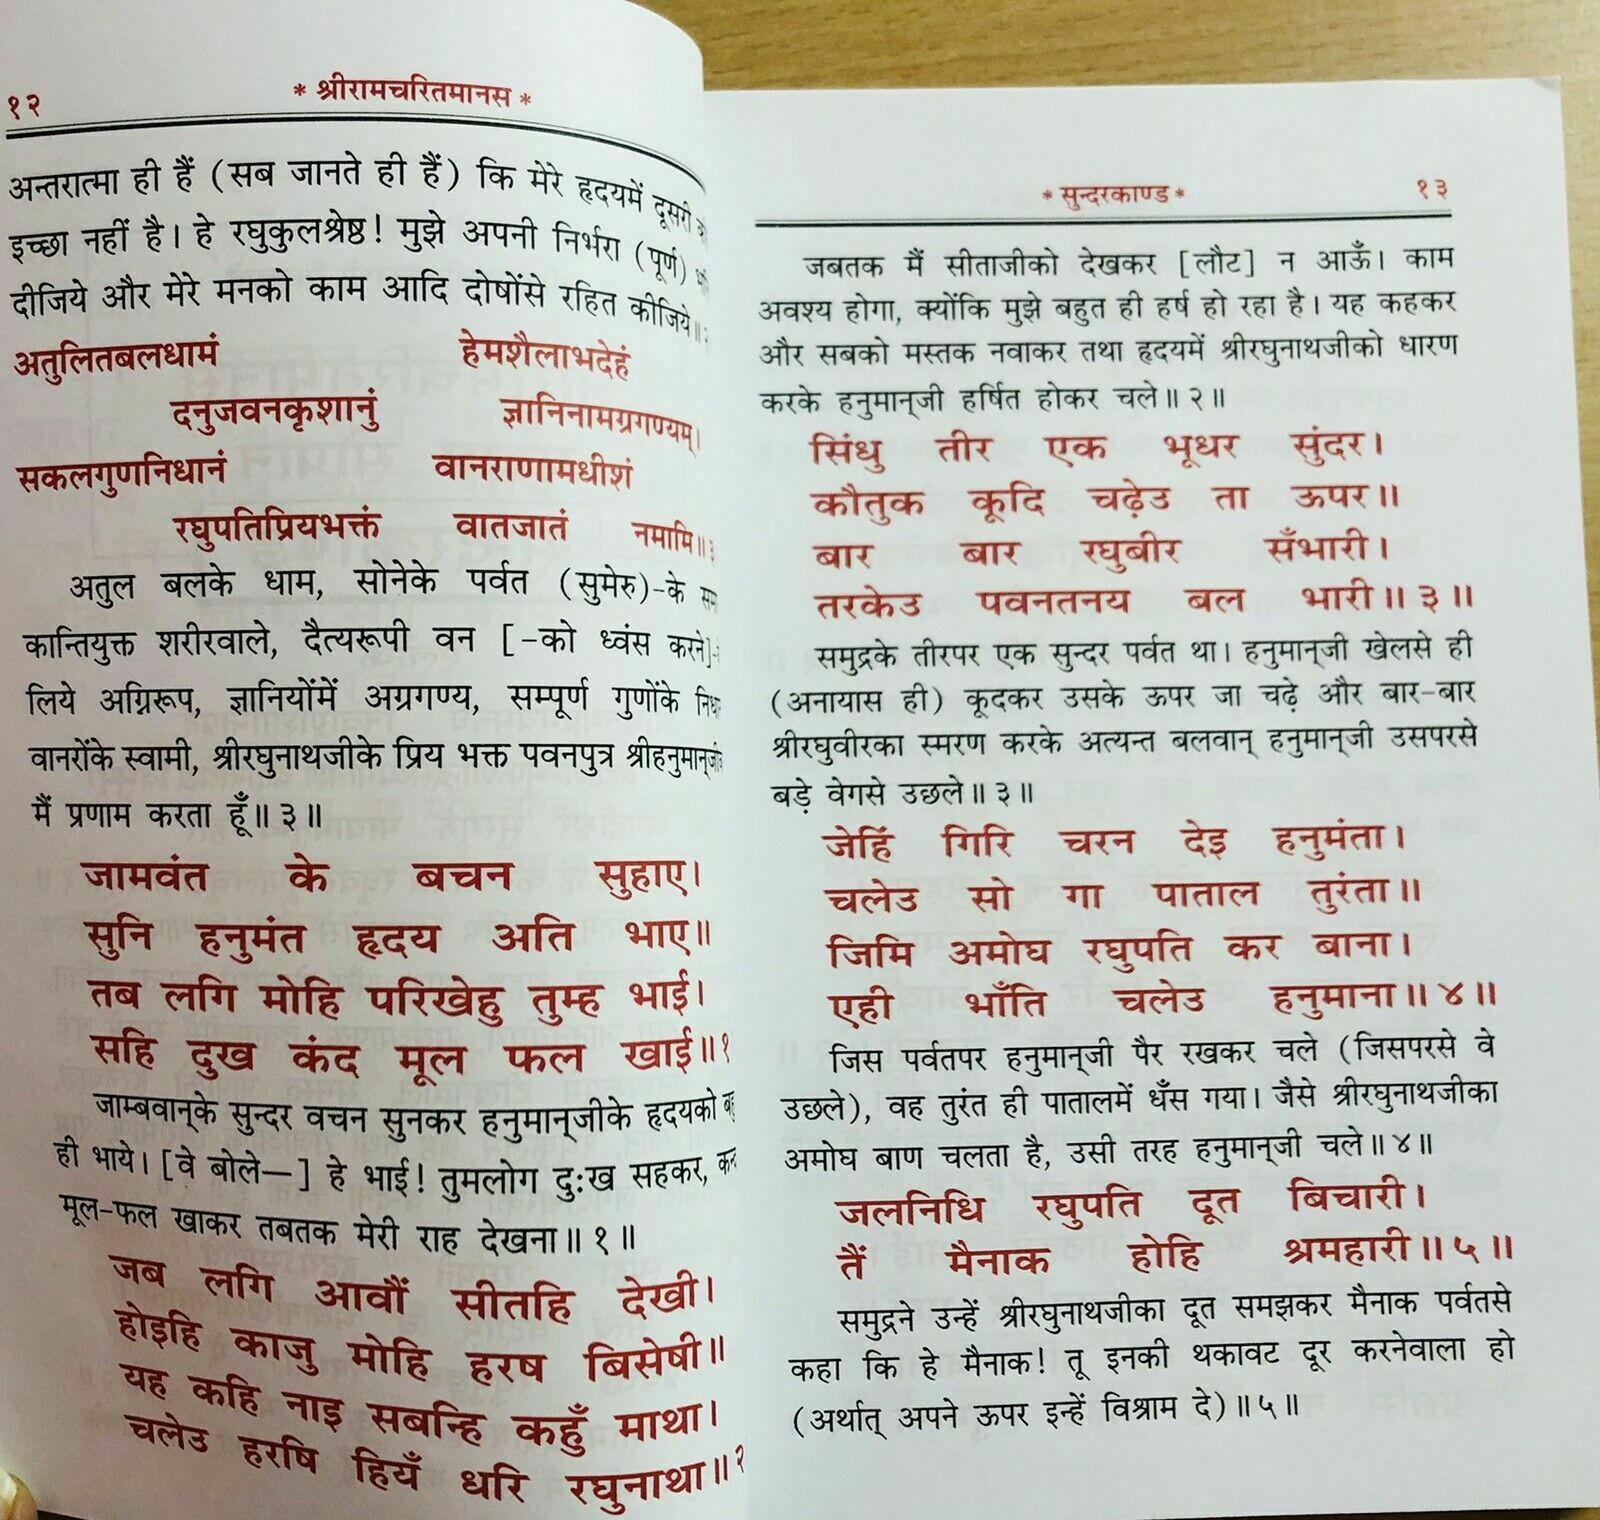 १२
* श्रीरामचरितमानस *
अन्तरात्मा ही हैं (सब जानते ही हैं) कि मेरे हृदयमें दूसरी
इच्छा नहीं है। हे रघुकुलश्रेष्ठ! मुझे अपनी निर्भरा (पूर्ण)
दीजिये और मेरे मनको काम आदि दोषोंसे रहित कीजिये॥
अतुलितबलधामं हेमशैलाभदेहं
दनुजवनकृशानुं ज्ञानिनामग्रगण्यम्।
सकलगुणनिधानं वानराणामधीशं
रघुपतिप्रियभक्तं वातजातं नमामि॥३
अतुल बलके धाम, सोनेके पर्वत (सुमेरु)-के
कान्तियुक्त शरीरवाले, दैत्यरूपी वन [-को ध्वंस करने]-
लिये अग्निरूप, ज्ञानियोंमें अग्रगण्य, सम्पूर्ण गुणोंके
वानरोंके स्वामी, श्रीरघुनाथजीके प्रिय भक्त पवनपुत्र श्रीहनुमान्‌जी
मैं प्रणाम करता हूँ॥३॥
जामवंत के बचन सुहाए।
सुनि हनुमंत हृदय अति भाए॥
तब लगि मोहि परिखेहु तुम्ह भाई।
सहि दुख कंद मूल फल खाई॥१
जाम्बवान्‌के सुन्दर वचन सुनकर हनुमान्‌जीके हृदयको
ही भाये। [वे बोले—] हे भाई! तुमलोग दुःख सहकर,
मूल-फल खाकर तबतक मेरी राह देखना॥१॥
जब लगि आवौं सीतहि देखी।
होइहि काजु मोहि हरष बिसेषी॥
यह कहि नाइ सबन्हि कहुँ माथा।
चलेउ हरषि हियँ धरि रघुनाथा॥२
* सुन्दरकाण्ड *
१३
जबतक मैं सीताजीको देखकर [लौट] न आऊँ। काम
अवश्य होगा, क्योंकि मुझे बहुत ही हर्ष हो रहा है। यह कहकर
और सबको मस्तक नवाकर तथा हृदयमें श्रीरघुनाथजीको धारण
करके हनुमान्‌जी हर्षित होकर चले॥२॥
सिंधु तीर एक भूधर सुंदर।
कौतुक कूदि चढ़ेउ ता ऊपर॥
बार बार रघुबीर सँभारी।
तरकेउ पवनतनय बल भारी॥३॥
समुद्रके तीरपर एक सुन्दर पर्वत था। हनुमान्‌जी खेलसे ही
(अनायास ही) कूदकर उसके ऊपर जा चढ़े और बार-बार
श्रीरघुवीरका स्मरण करके अत्यन्त बलवान् हनुमान्‌जी उसपरसे
बड़े वेगसे उछले॥३॥
जेहिं गिरि चरन देइ हनुमंता।
चलेउ सो गा पाताल तुरंता॥
जिमि अमोघ रघुपति कर बाना।
एही भाँति चलेउ हनुमाना॥४॥
जिस पर्वतपर हनुमान्‌जी पैर रखकर चले (जिसपरसे वे
उछले), वह तुरंत ही पातालमें धँस गया। जैसे श्रीरघुनाथजीका
अमोघ बाण चलता है, उसी तरह हनुमान्‌जी चले॥४॥
जलनिधि रघुपति दूत बिचारी।
तैं मैनाक होहि श्रमहारी॥५॥
समुद्रने उन्हें श्रीरघुनाथजीका दूत समझकर मैनाक पर्वतसे
कहा कि हे मैनाक! तू इनकी थकावट दूर करनेवाला हो
(अर्थात् अपने ऊपर इन्हें विश्राम दे)॥५॥